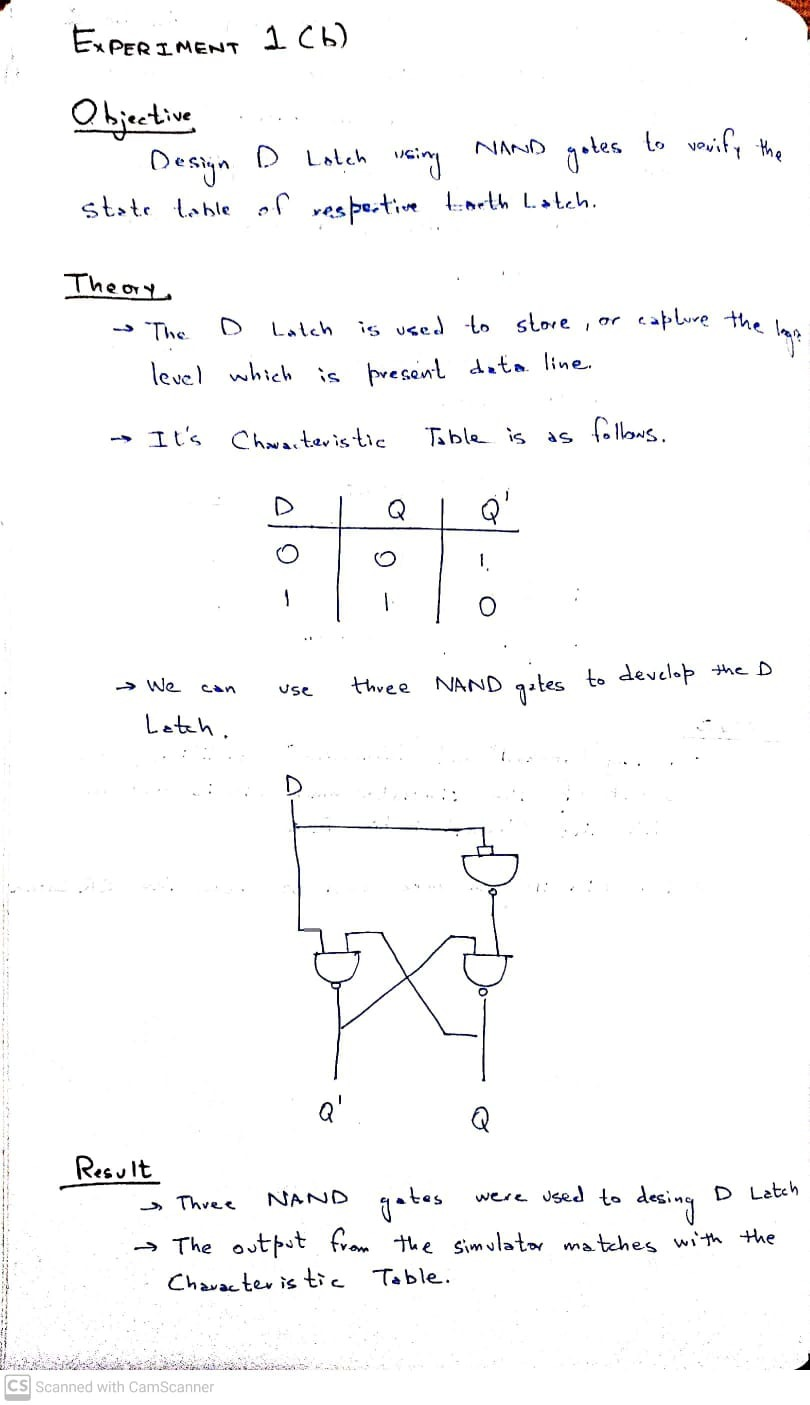 EXPERIMENT 1 (b)
Objective
Design D Latch using NAND gates to verify the
state table of respective Latch.
Theory
→ The D Latch is used to store, or capture the
level which is present data line.
→ It's Characteristic Table is as follows.
D Q Q'
0 0 1
1 1 0
→ We can use three NAND gates to develop the D
Latch.
D
Q' Q
Result
→ Three NAND gates were used to desing D Latch
→ The output from the simulator matches with the
Characteristic Table.
CS Scanned with CamScanner